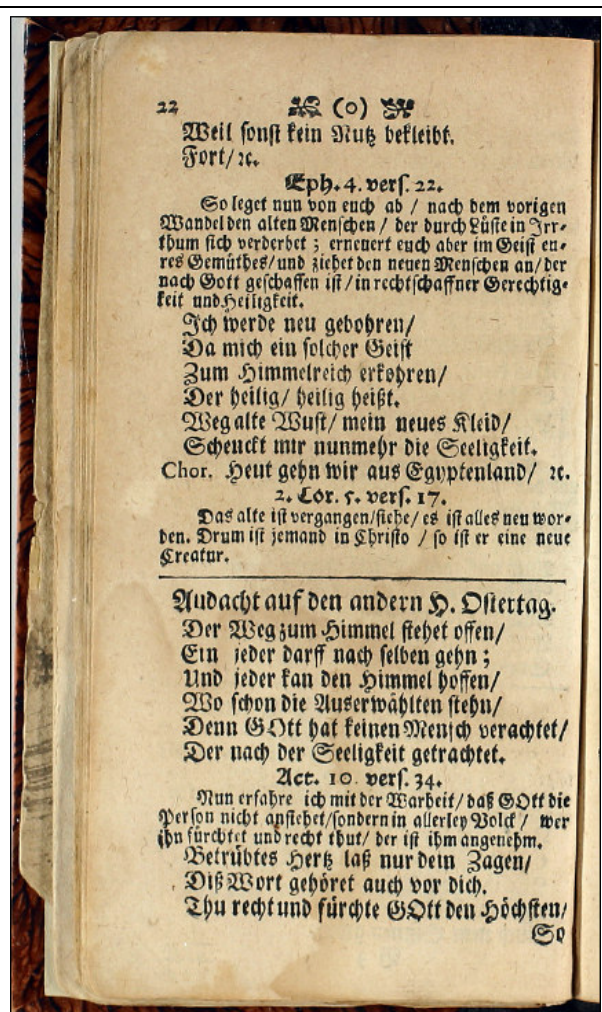 22 (o)
Weil sonst kein Nutz bekleibt.
Fort/ ꝛc.
Eph. 4. vers. 22.
So leget nun von euch ab / nach dem vorigen
Wandel den alten Menschen / der durch Lüste in Irr-
thum sich verderbet ; erneuert euch aber im Geist eu-
res Gemüthes/ und ziehet den neuen Menschen an/ der
nach Gott geschaffen ist / in rechtschaffner Gerechtig-
keit und Heiligkeit.
Ich werde neu gebohren/
Da mich ein solcher Geist
Zum Himmelreich erkohren/
Der heilig/ heilig heißt.
Weg alte Wust/ mein neues Kleid/
Schenckt mir nunmehr die Seeligkeit.
Chor. Heut gehn wir aus Egyptenland/ ꝛc.
2. Cor. 5. vers. 17.
Das alte ist vergangen/siehe/ es ist alles neu wor-
den. Drum ist jemand in Christo / so ist er eine neue
Creatur.
Andacht auf den andern H. Ostertag.
Der Weg zum Himmel stehet offen/
Ein jeder darff nach selben gehn ;
Und jeder kan den Himmel hoffen/
Wo schon die Auserwählten stehn/
Denn GOtt hat keinen Mensch verachtet/
Der nach der Seeligkeit getrachtet.
Act. 10. vers. 34.
Nun erfahre ich mit der Warheit/ daß GOtt die
Person nicht anstehet/sondern in allerley Volck / wer
ihn fürchtet und recht thut/ der ist ihm angenehm.
Betrübtes Hertz laß nur dein Zagen/
Diß Wort gehöret auch vor dich.
Thu recht und fürchte GOtt den Höchsten/
So